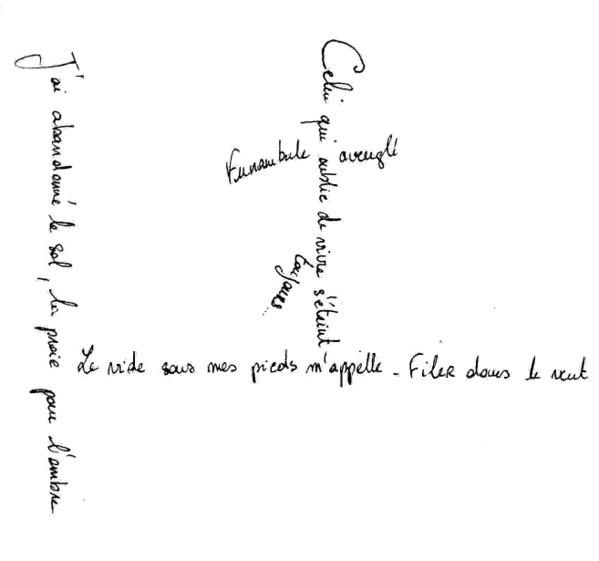 J'ai abandonné le sol, la proie pour l'ombre
Celui qui oublie de vivre s'éteint
Funambule aveuglé
Le vide sous mes pieds m'appelle - Filer dans le vent